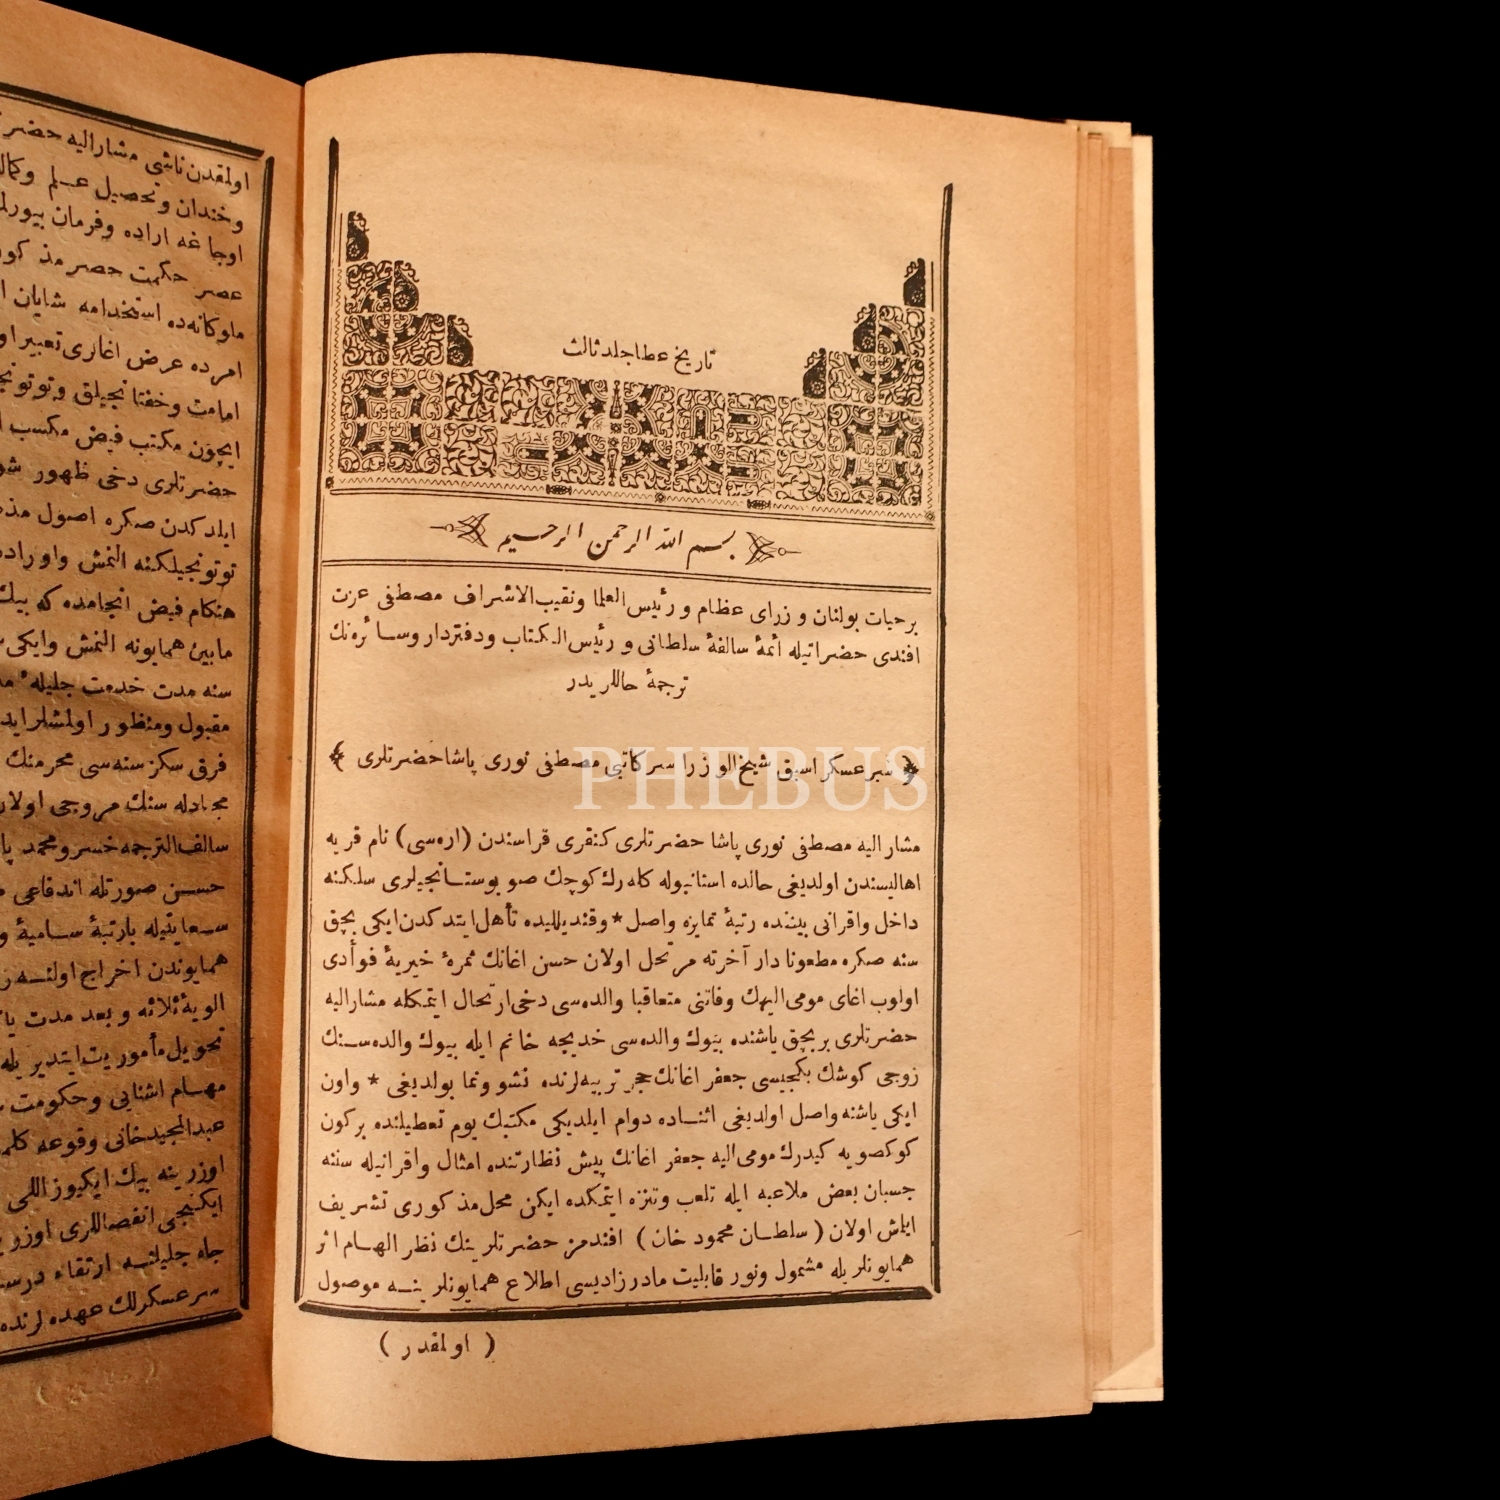 تاریخ عطا جلد ثالث
بسم الله الرحمن الرحیم
برحیات بولنان وزرای عظام و رئیس العلما ونقیب الاشراف مصطفی عزت
افندی حضراتیله ائمۀ سالفۀ سلطانی و رئیس الکتاب ودفتردار وسائره نك
ترجمۀ حاللریدر
سرعسکر اسبق شیخ الوزرا سرکاتبی مصطفی نوری پاشا حضرتلری
PHEBUS
مشار الیه مصطفی نوری پاشا حضرتلری کنقری قراسندن (اره سی) نام قریه
اهالیسندن اولدیغی حالده استانبوله کله رك کوچك صو بوستانجیلری سلکنه
داخل واقرانی بیننده رتبۀ تمایزه واصل * وقندیللیده تأهل ایتدکدن ایکی بچق
سنه صکره مطعونا دار آخرته مرتحل اولان حسن اغانك ثمرۀ خیریۀ فوأدی
اولوب اغای مومی الیهك وفاتنی متعاقبا والده سی دخی ارتحال ایتمکله مشارالیه
حضرتلری بر بچق یاشنده بیوك والده سی خدیجه خانم ایله بیوك والده سنك
زوجی کوشك بکجیسی جعفر اغانك حجر تربیه لرنده نشو ونما بولدیغی * واون
ایکی یاشنه واصل اولدیغی اثناده دوام ایلدیکی مکتبك یوم تعطیلنده برکون
کوکصویه کیدرك مومی الیه جعفر اغانك پیش نظارتنده امثال واقرانیله سننه
جسبان بعض ملاعبه ایله تلعب وتنزه ایتمکده ایکن محل مذکوری تشریف
ایلمش اولان (سلطان محمود خان) افندمز حضرتلرینك نظر الهام اثر
همایونلریله مشمول ونور قابلیت مادرزادیسی اطلاع همایونلرینه موصول
(اولمقدر)
اولمقدن ناشی مشارالیه
وخندان وتحصیل علم
اوجاغه اراده وفرمان
عصر حکمت حصر
ماوکانه ده استخدامه شایان
امرده عرض اغاری تعبیر
امامت وخفتانجیلق
ایچون مکتب فیض مکسب
حضرتلری دخی ظهور
ایلدکدن صکره اصول
توتونجیلکنه النمش
هنکام فیض انجامده که بیك
مابین همایونه النمش وایکی
سنه مدت خدمت جلیله
مقبول ومنظور اولمشلر
فرق سکز سنه سی محرمنك
مجادله سنك مروجی اولان
سالف الترجمه خسرو محمد
حسن صورتله اندفاعی
سعایتیله بارتبۀ سامیۀ
همایوندن اخراج
الویۀ ثلاثه و بعد مدت
تحویل مأموریت ایتدیریله
مهام اشنایی وحکومت
عبدالمجید خانی وقوعه
اوزرینه بیك ایکیوز اللی
ایکنجی انفصاللری
جاه جلیلنه ارتقاء
سرعسکرلك عهده لرنده